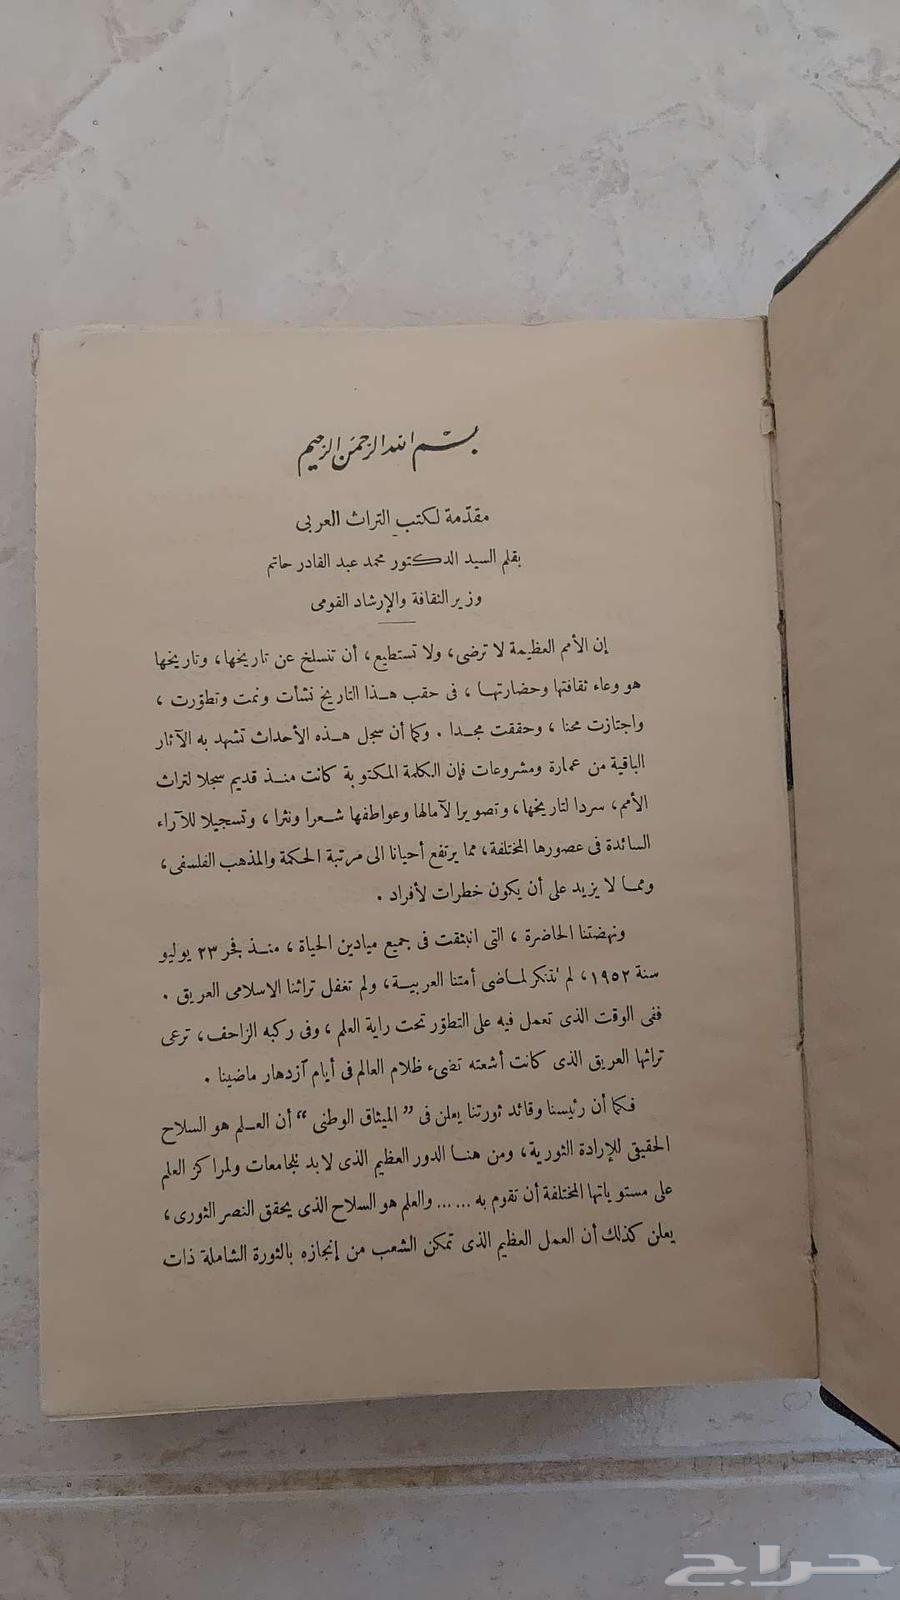 بسم الله الرحمن الرحيم
مقدّمة لكتب التراث العربى
بقلم السيد الدكتور محمد عبد القادر حاتم
وزير الثقافة والإرشاد القومى
إن الأمم العظيمة لا ترضى، ولا تستطيع، أن تنسلخ عن تاريخها، وتاريخها
هو وعاء ثقافتها وحضارتها، فى حقب هذا التاريخ نشأت ونمت وتطوّرت،
واجتازت محنا، وحققت مجدا. وكما أن سجل هذه الأحداث تشهد به الآثار
الباقية من عمارة ومشروعات فإن الكلمة المكتوبة كانت منذ قديم سجلا لتراث
الأمم، سردا لتاريخها، وتصويرا لآمالها وعواطفها شعرا ونثرا، وتسجيلا للآراء
السائدة فى عصورها المختلفة، مما يرتفع أحيانا الى مرتبة الحكمة والمذهب الفلسفى،
ومما لا يزيد على أن يكون خطرات لأفراد.
ونهضتنا الحاضرة، التى انبثقت فى جميع ميادين الحياة، منذ فجر ٢٣ يوليو
سنة ١٩٥٢، لم تتنكر لماضى أمتنا العربية، ولم تغفل تراثنا الاسلامى العريق.
ففى الوقت الذى تعمل فيه على التطوّر تحت راية العلم، وفى ركبه الزاحف، ترعى
تراثها العريق الذى كانت أشعته تضىء ظلام العالم فى أيام آزدهار ماضينا.
فكما أن رئيسنا وقائد ثورتنا يعلن فى "الميثاق الوطنى" أن العلم هو السلاح
الحقيقى للإرادة الثورية، ومن هنا الدور العظيم الذى لابد للجامعات ولمراكز العلم
على مستوياتها المختلفة أن تقوم به ...... والعلم هو السلاح الذى يحقق النصر الثورى،
يعلن كذلك أن العمل العظيم الذى تمكن الشعب من إنجازه بالثورة الشاملة ذات
حراج